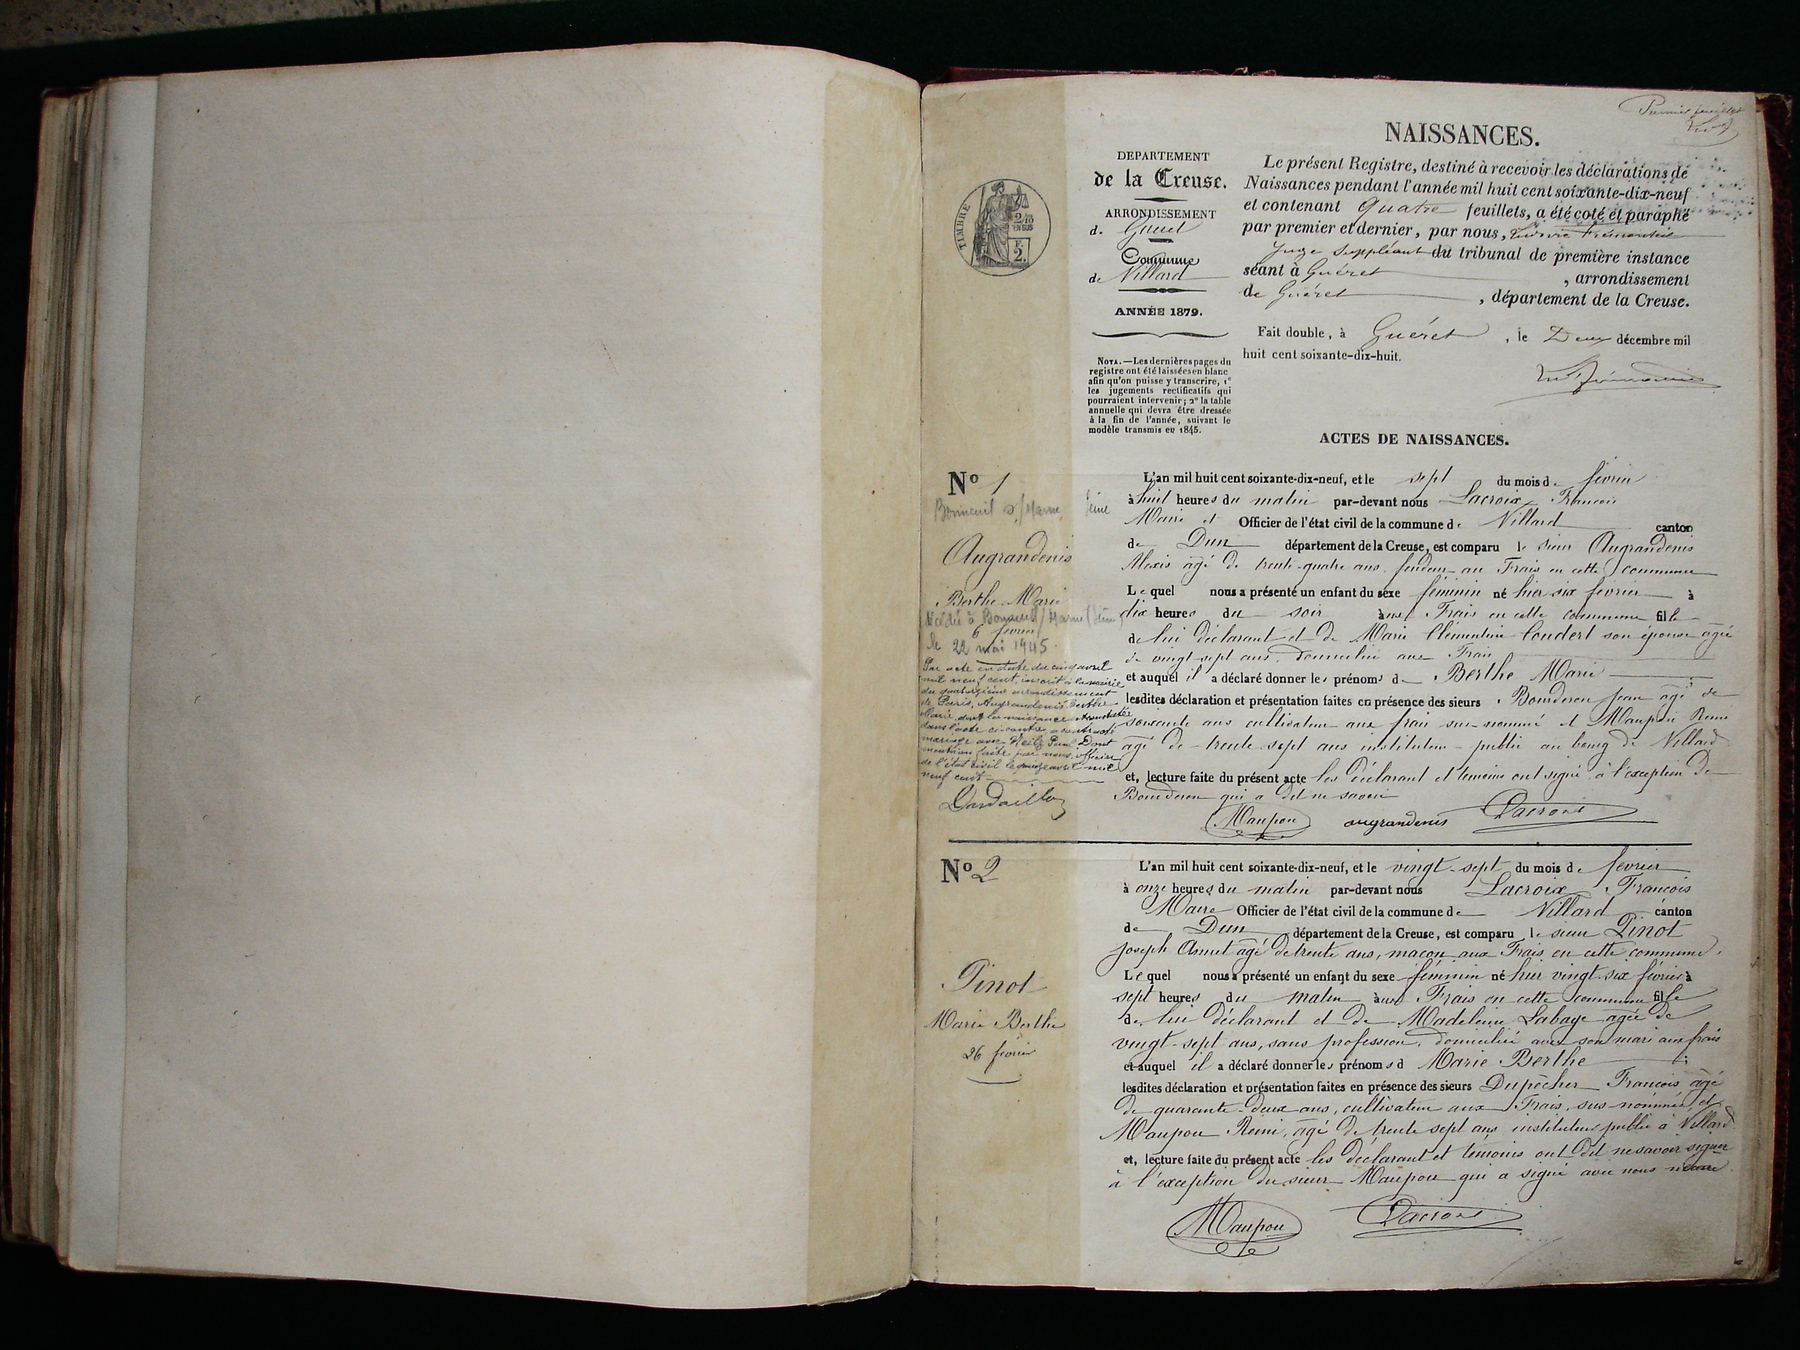 Premier feuillet
NAISSANCES.
DEPARTEMENT
de la Creuse.
ARRONDISSEMENT
d. Guéret
Commune
de Villard
ANNÉE 1879.
NOTA.—Les dernières pages du
registre ont été laissées en blanc
afin qu'on puisse y transcrire, 1°
les jugements rectificatifs qui
pourraient intervenir; 2° la table
annuelle qui devra être dressée
à la fin de l'année, suivant le
modèle transmis en 1845.
TIMBRE
2/10
EN SUS
F.
2.
Le présent Registre, destiné à recevoir les déclarations de
Naissances pendant l'année mil huit cent soixante-dix-neuf
et contenant Quatre feuillets, a été coté et paraphé
par premier et dernier, par nous,
Juge Suppléant du tribunal de première instance
séant à Guéret, arrondissement
de Guéret, département de la Creuse.
Fait double, à Guéret, le Deux décembre mil
huit cent soixante-dix-huit.
ACTES DE NAISSANCES.
N° 1
Bonneuil s/Marne Seine
Augrandenis
Berthe Marie
Décédée à Bonneuil s/Marne (Seine)
6 fevrier
le 22 mai 1945.
Par acte en date du cinq avril
mil neuf cent, inscrit à la mairie
du quatorzième arrondissement
de Paris, Augrandenis Berthe
Marie, dont la naissance est constatée
dans l'acte ci-contre, a contracté
mariage avec Paul. Dont
mention faite par nous, officier
de l'état civil le avril mil
neuf cent
Dardaillon
L'an mil huit cent soixante-dix-neuf, et le sept du mois de fevrier
à huit heures du matin par-devant nous Lacroix François
Maire et Officier de l'état civil de la commune de Villard canton
de Dun département de la Creuse, est comparu le sieur Augrandenis
Alexis agé de trente-quatre ans, aux Frais en cette commune
Lequel nous a présenté un enfant du sexe féminin né hier six fevrier à
dix heures du soir aux Frais en cette commune fille
de lui déclarant et de Marie Clémentine Coudert son épouse agée
de vingt-sept ans, domiciliée aux Frais
et auquel il a déclaré donner les prénoms de Berthe Marie
lesdites déclaration et présentation faites en présence des sieurs Bouderon Jean agé de
soixante ans cultivateur aux frais sus-nommé et Maupou Remi
agé de trente sept ans instituteur public au bourg de Villard
et, lecture faite du présent acte les déclarant et témoins ont signé à l'exception de
Bouderon qui a dit ne savoir
Maupou augrandenis Lacroix
N° 2
Pinot
Marie Berthe
26 fevrier
L'an mil huit cent soixante-dix-neuf, et le vingt-sept du mois de fevrier
à onze heures du matin par-devant nous Lacroix François
Maire Officier de l'état civil de la commune de Villard canton
de Dun département de la Creuse, est comparu le sieur Pinot
Joseph agé de trente ans, maçon aux Frais en cette commune,
Lequel nous a présenté un enfant du sexe féminin né hier vingt-six fevrier à
sept heures du matin aux Frais en cette commune fille
de lui déclarant et de Madeleine Labaye agée de
vingt-sept ans, sans profession, domiciliée avec son mari aux frais
et auquel il a déclaré donner les prénoms d Marie Berthe
lesdites déclaration et présentation faites en présence des sieurs Dupêcher François agé
de quarante-deux ans, cultivateur aux Frais, sus-nommés, et
Maupou Remi, agé de trente sept ans instituteur public à Villard
et, lecture faite du présent acte les déclarant et témoins ont dit ne savoir signer
à l'exception du sieur Maupou qui a signé avec nous maire
Maupou Lacroix